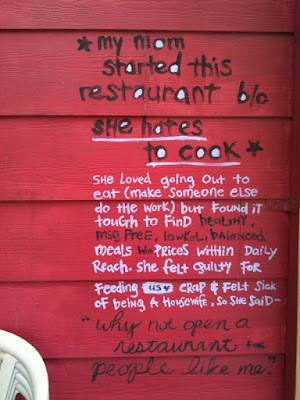 ★ my mom
started this
restaurant b/c
she hates
to cook ★
SHE LOVED going OUT to
eat (make Someone else
do the work) but Found it
tough to FIND HEALTHY,
msg FREE, lowkal, balanced
meals with PRICES WITHIN DAILY
REACH. She felt guilty FOR
Feeding us ♥ CRAP & FELT Sick
of being A HOUSEWIFE, So SHE SAID-
"why not open a
restaurant FOR
people like me."